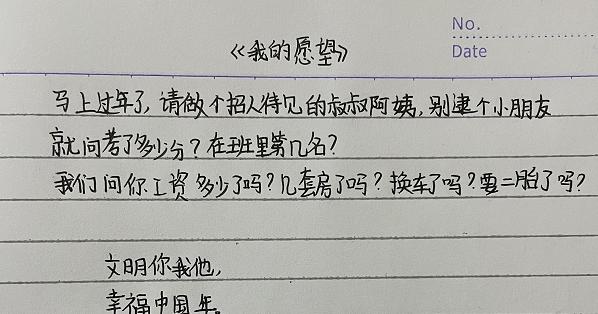 No.
Date
《我的愿望》
马上过年了,请做个招人待见的叔叔阿姨,别逮个小朋友
就问考了多少分?在班里第几名?
我们问你工资多少了吗?几套房了吗?换车了吗?要二胎了吗?
文明你我他,
幸福中国年。